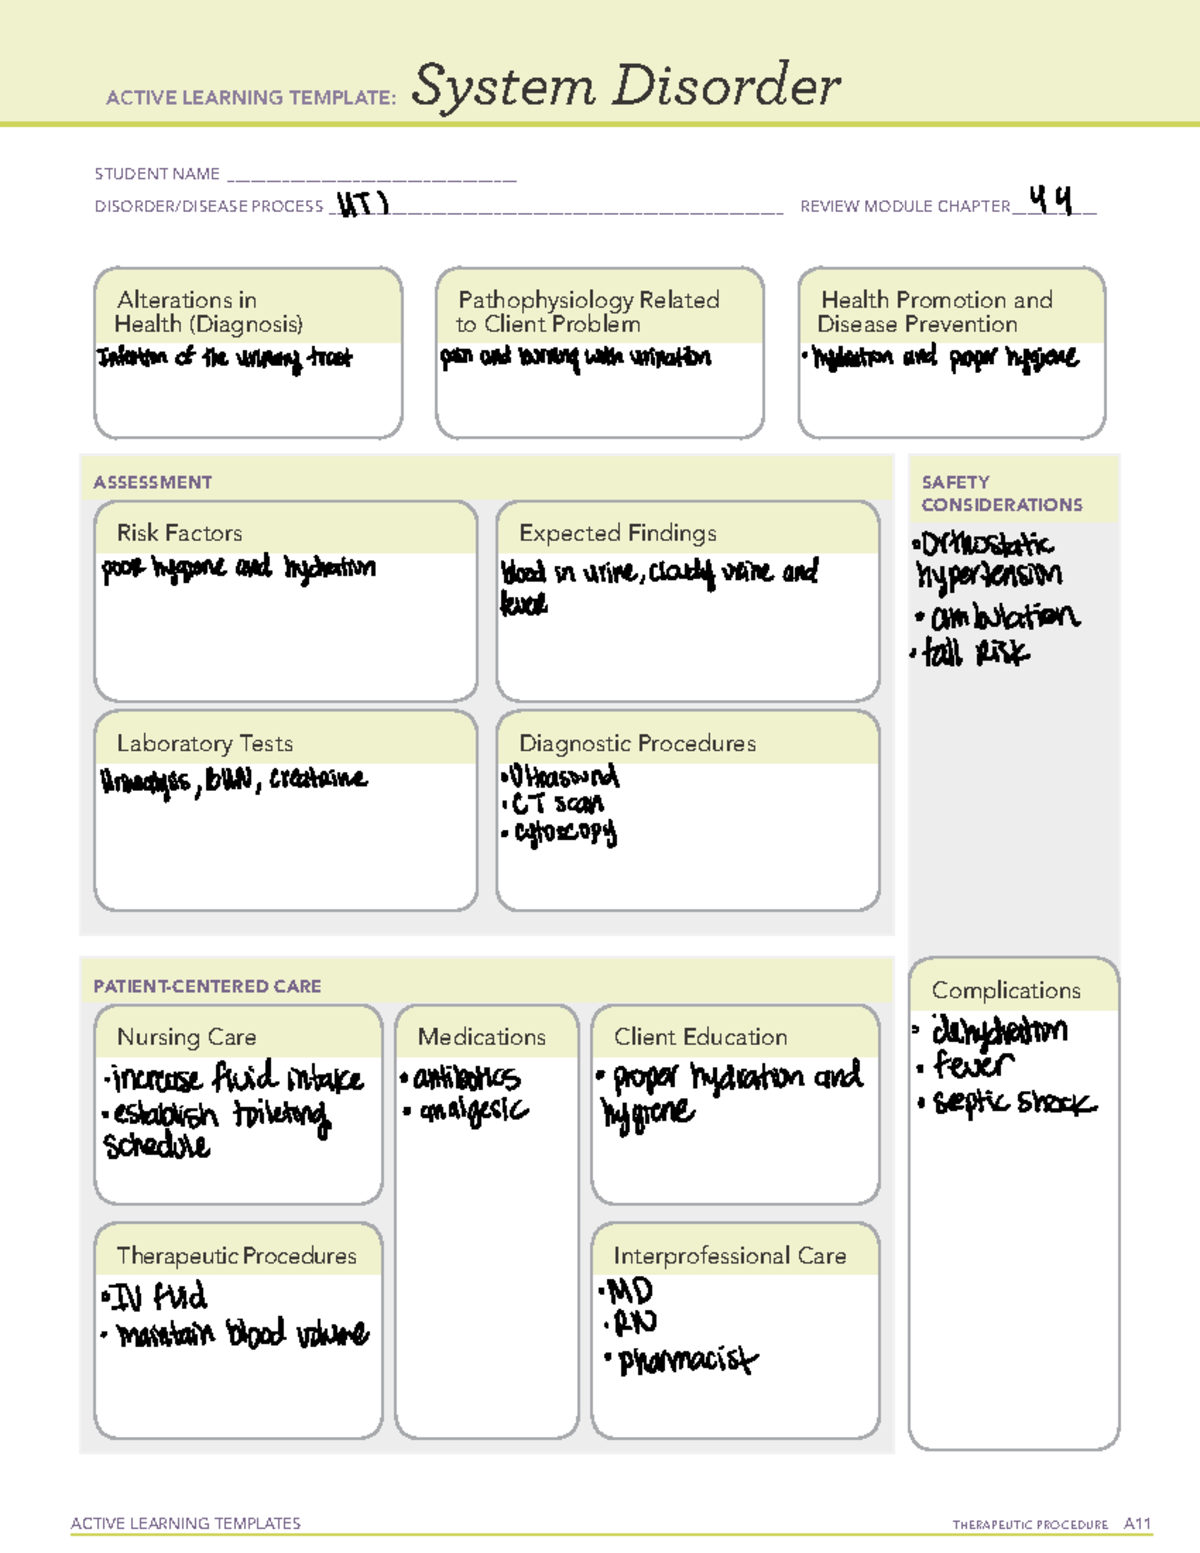 ACTIVE LEARNING TEMPLATE: System Disorder
STUDENT NAME
DISORDER/DISEASE PROCESS UTI
REVIEW MODULE CHAPTER 44
Alterations in
Health (Diagnosis)
Infection of the urinary tract
Pathophysiology Related
to Client Problem
pain and burning with urination
Health Promotion and
Disease Prevention
• hydration and proper hygiene
ASSESSMENT
Risk Factors
poor hygiene and hydration
Expected Findings
blood in urine, cloudy urine and
fever
Laboratory Tests
Urinalysis, BUN, creatinine
Diagnostic Procedures
• Ultrasound
• CT scan
• cytoscopy
SAFETY
CONSIDERATIONS
• Orthostatic
hypertension
• ambulation
• fall Risk
PATIENT-CENTERED CARE
Nursing Care
• increase fluid intake
• establish toileting
schedule
Medications
• antibiotics
• analgesic
Client Education
• proper hydration and
hygiene
Therapeutic Procedures
• IV fluid
• maintain blood volume
Interprofessional Care
• MD
• RN
• pharmacist
Complications
• dehydration
• fever
• septic shock
ACTIVE LEARNING TEMPLATES
THERAPEUTIC PROCEDURE A11